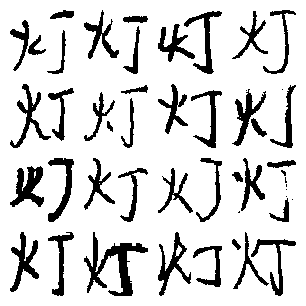 灯灯灯灯
灯灯灯灯
灯灯灯灯
灯灯灯灯